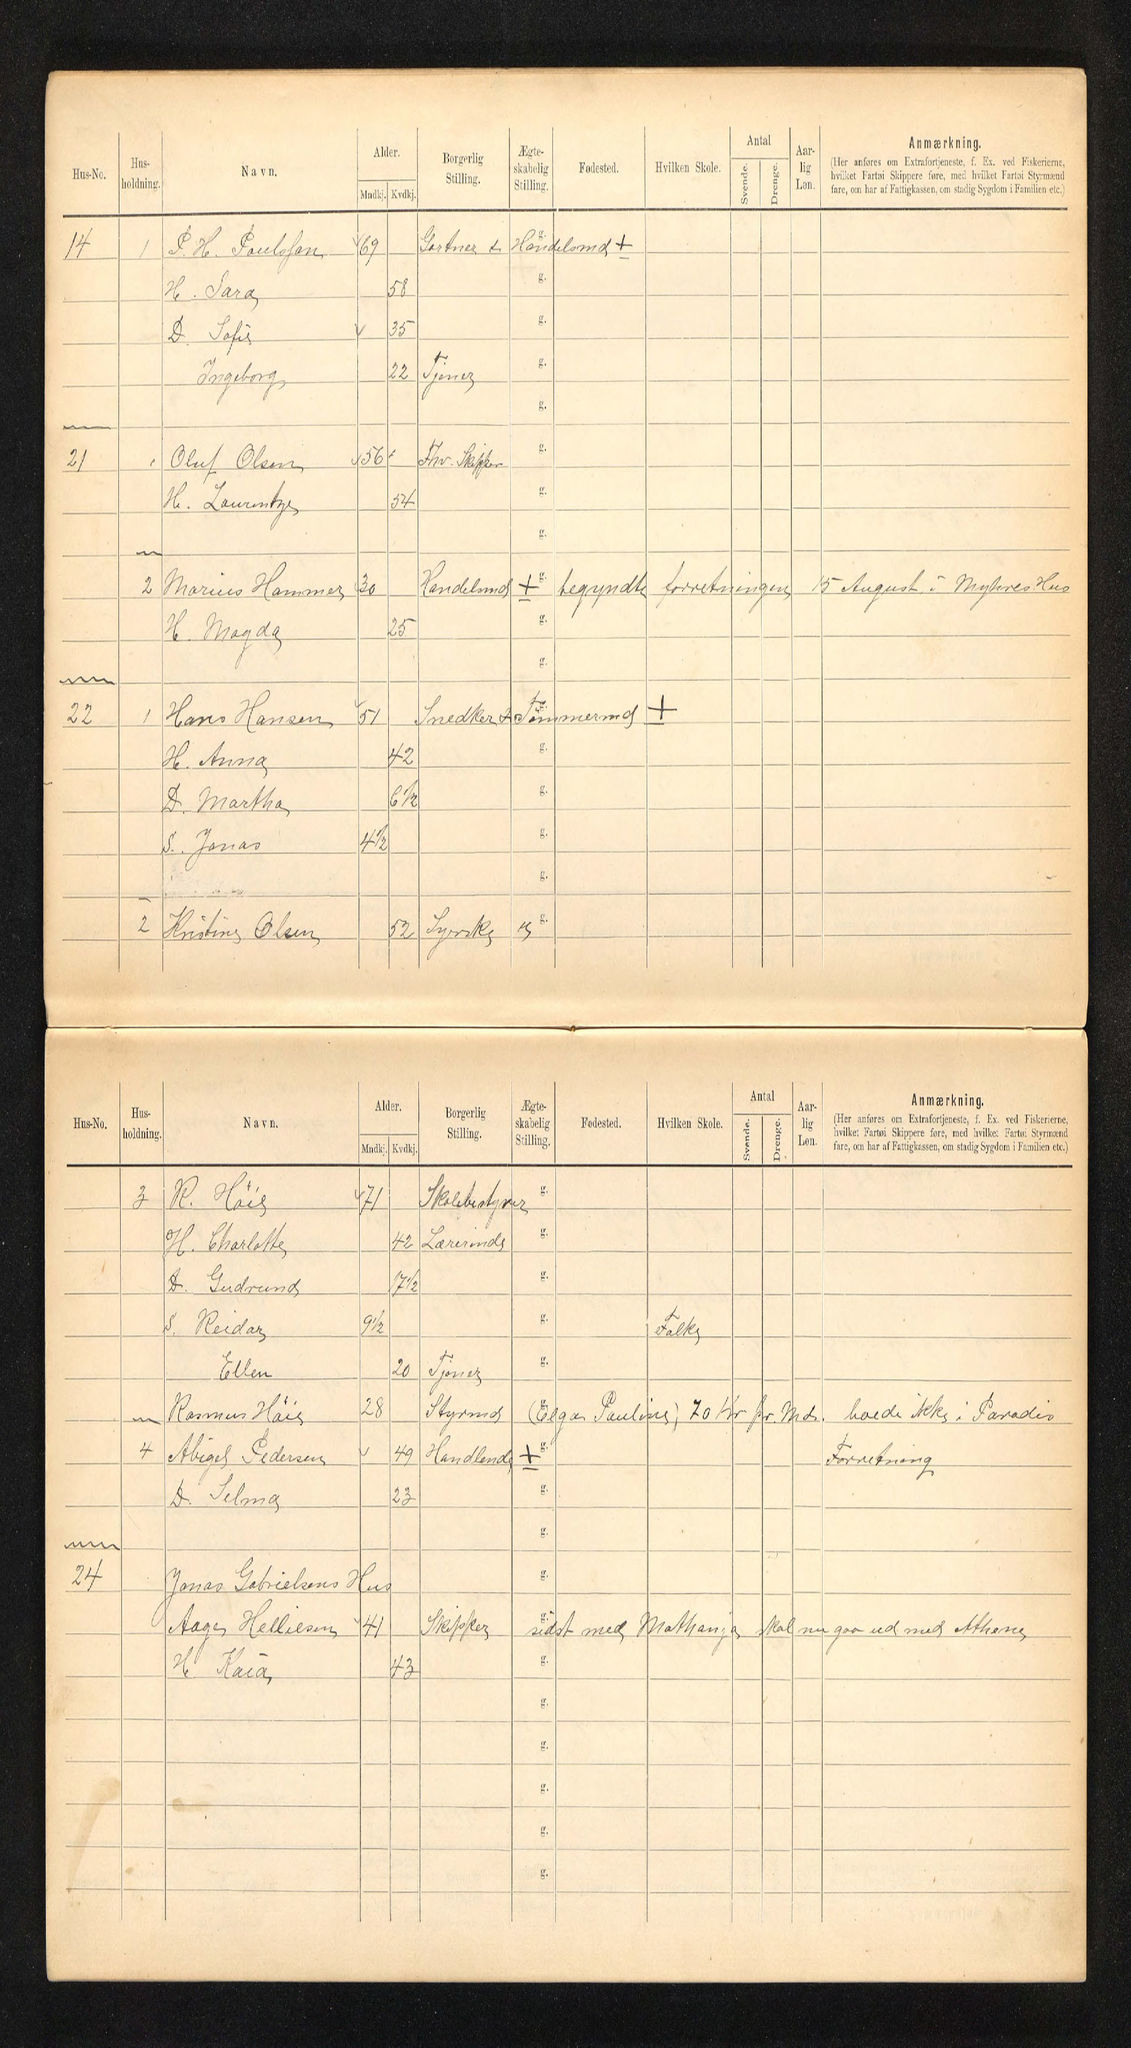 Hus-No. Hus-holdning. Navn. Alder. Mndkj. Kvdkj. Borgerlig Stilling. Ægte-skabelig Stilling. Fødested. Hvilken Skole. Antal Svende. Drenge. Aar-lig Løn. Anmærkning.
(Her anføres om Extrafortjeneste, f. Ex. ved Fiskerierne,
hvilket Fartøi Skippere føre, med hvilket Fartøi Styrmænd
fare, om har af Fattigkassen, om stadig Sygdom i Familien etc.)
14 1 P. H. Paulssen 69 Gartner & Handelsmd + g.
H. Sara 58 g.
D. Sofie 35 g.
Ingeborg 22 Tjener g.
g.
21 1 Oluf Olsen 56 Fhv. Skipper g.
H. Laurentze 54 g.
g.
2 Marius Hammer 30 Handelsmd + g. begyndte forretningen 15 August i Myhres Hus
H. Magda 25 g.
g.
22 1 Hans Hansen 51 Snedker & Tømmermd + g.
H. Anna 42 g.
D. Martha 6 1/2 g.
S. Jonas 4 1/2 g.
g.
2 Kristine Olsen 52 Syerske g.
Hus-No. Hus-holdning. Navn. Alder. Mndkj. Kvdkj. Borgerlig Stilling. Ægte-skabelig Stilling. Fødested. Hvilken Skole. Antal Svende. Drenge. Aar-lig Løn. Anmærkning.
(Her anføres om Extrafortjeneste, f. Ex. ved Fiskerierne,
hvilket Fartøi Skippere føre, med hvilket Fartøi Styrmænd
fare, om har af Fattigkassen, om stadig Sygdom i Familien etc.)
3 R. Höie 71 Skolebestyrer g.
H. Charlotte 42 Lærerinde g.
D. Gudrund 17 1/2 g.
S. Reidar 9 1/2 g. Folke
Ellen 20 Tjener g.
Rasmus Höie 28 Styrmd (Olga Pauline) 70 Kr pr. Md. boede ikke i Paradis
4 Abigel Pedersen 49 Handlende + g. Forretning
D. Selma 23 g.
g.
24 Jonas Gabrielsens Hus g.
Aage Helliesen 41 Skipper g. sidst med Mathanja skal nu gaa ud med Athene
H. Kaia 43 g.
g.
g.
g.
g.
g.